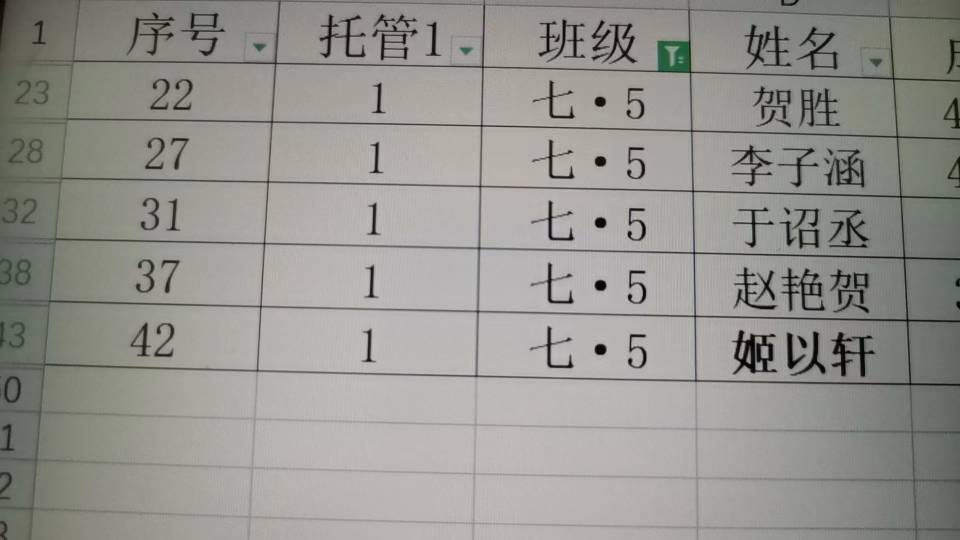 1 序号 托管1 班级 姓名
23 22 1 七·5 贺胜 4
28 27 1 七·5 李子涵 4
32 31 1 七·5 于诏丞
38 37 1 七·5 赵艳贺
43 42 1 七·5 姬以轩